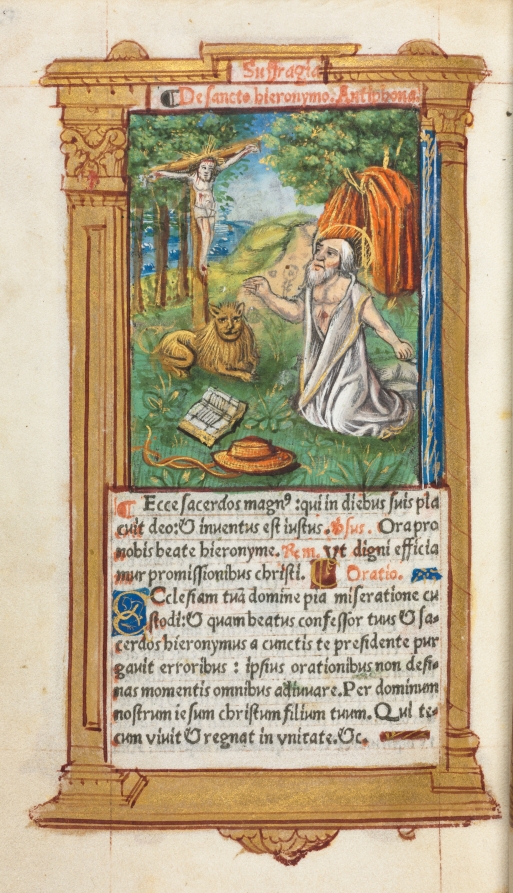 Suffragia
De sancto hieronymo. Antiphona.
Ecce sacerdos magnꝰ :qui in diebus suis pla
cuit deo:⁊ inventus est iustus. ℣sus. Ora pro
nobis beate hieronyme. Rem. vt digni efficia
mur promissionibus christi. Oratio.
ECclesiam tuā domine pia miseratione cu
stodi:⁊ quam beatus confessor tuus ⁊ sa-
cerdos hieronymus a cunctis te presidente pur
gauit erroribus : ipsius orationibus non desi-
nas momentis omnibus adiuuare. Per dominum
nostrum iesum christum filium tuum. Qui te-
cum viuit ⁊ regnat in vnitate. ⁊c.